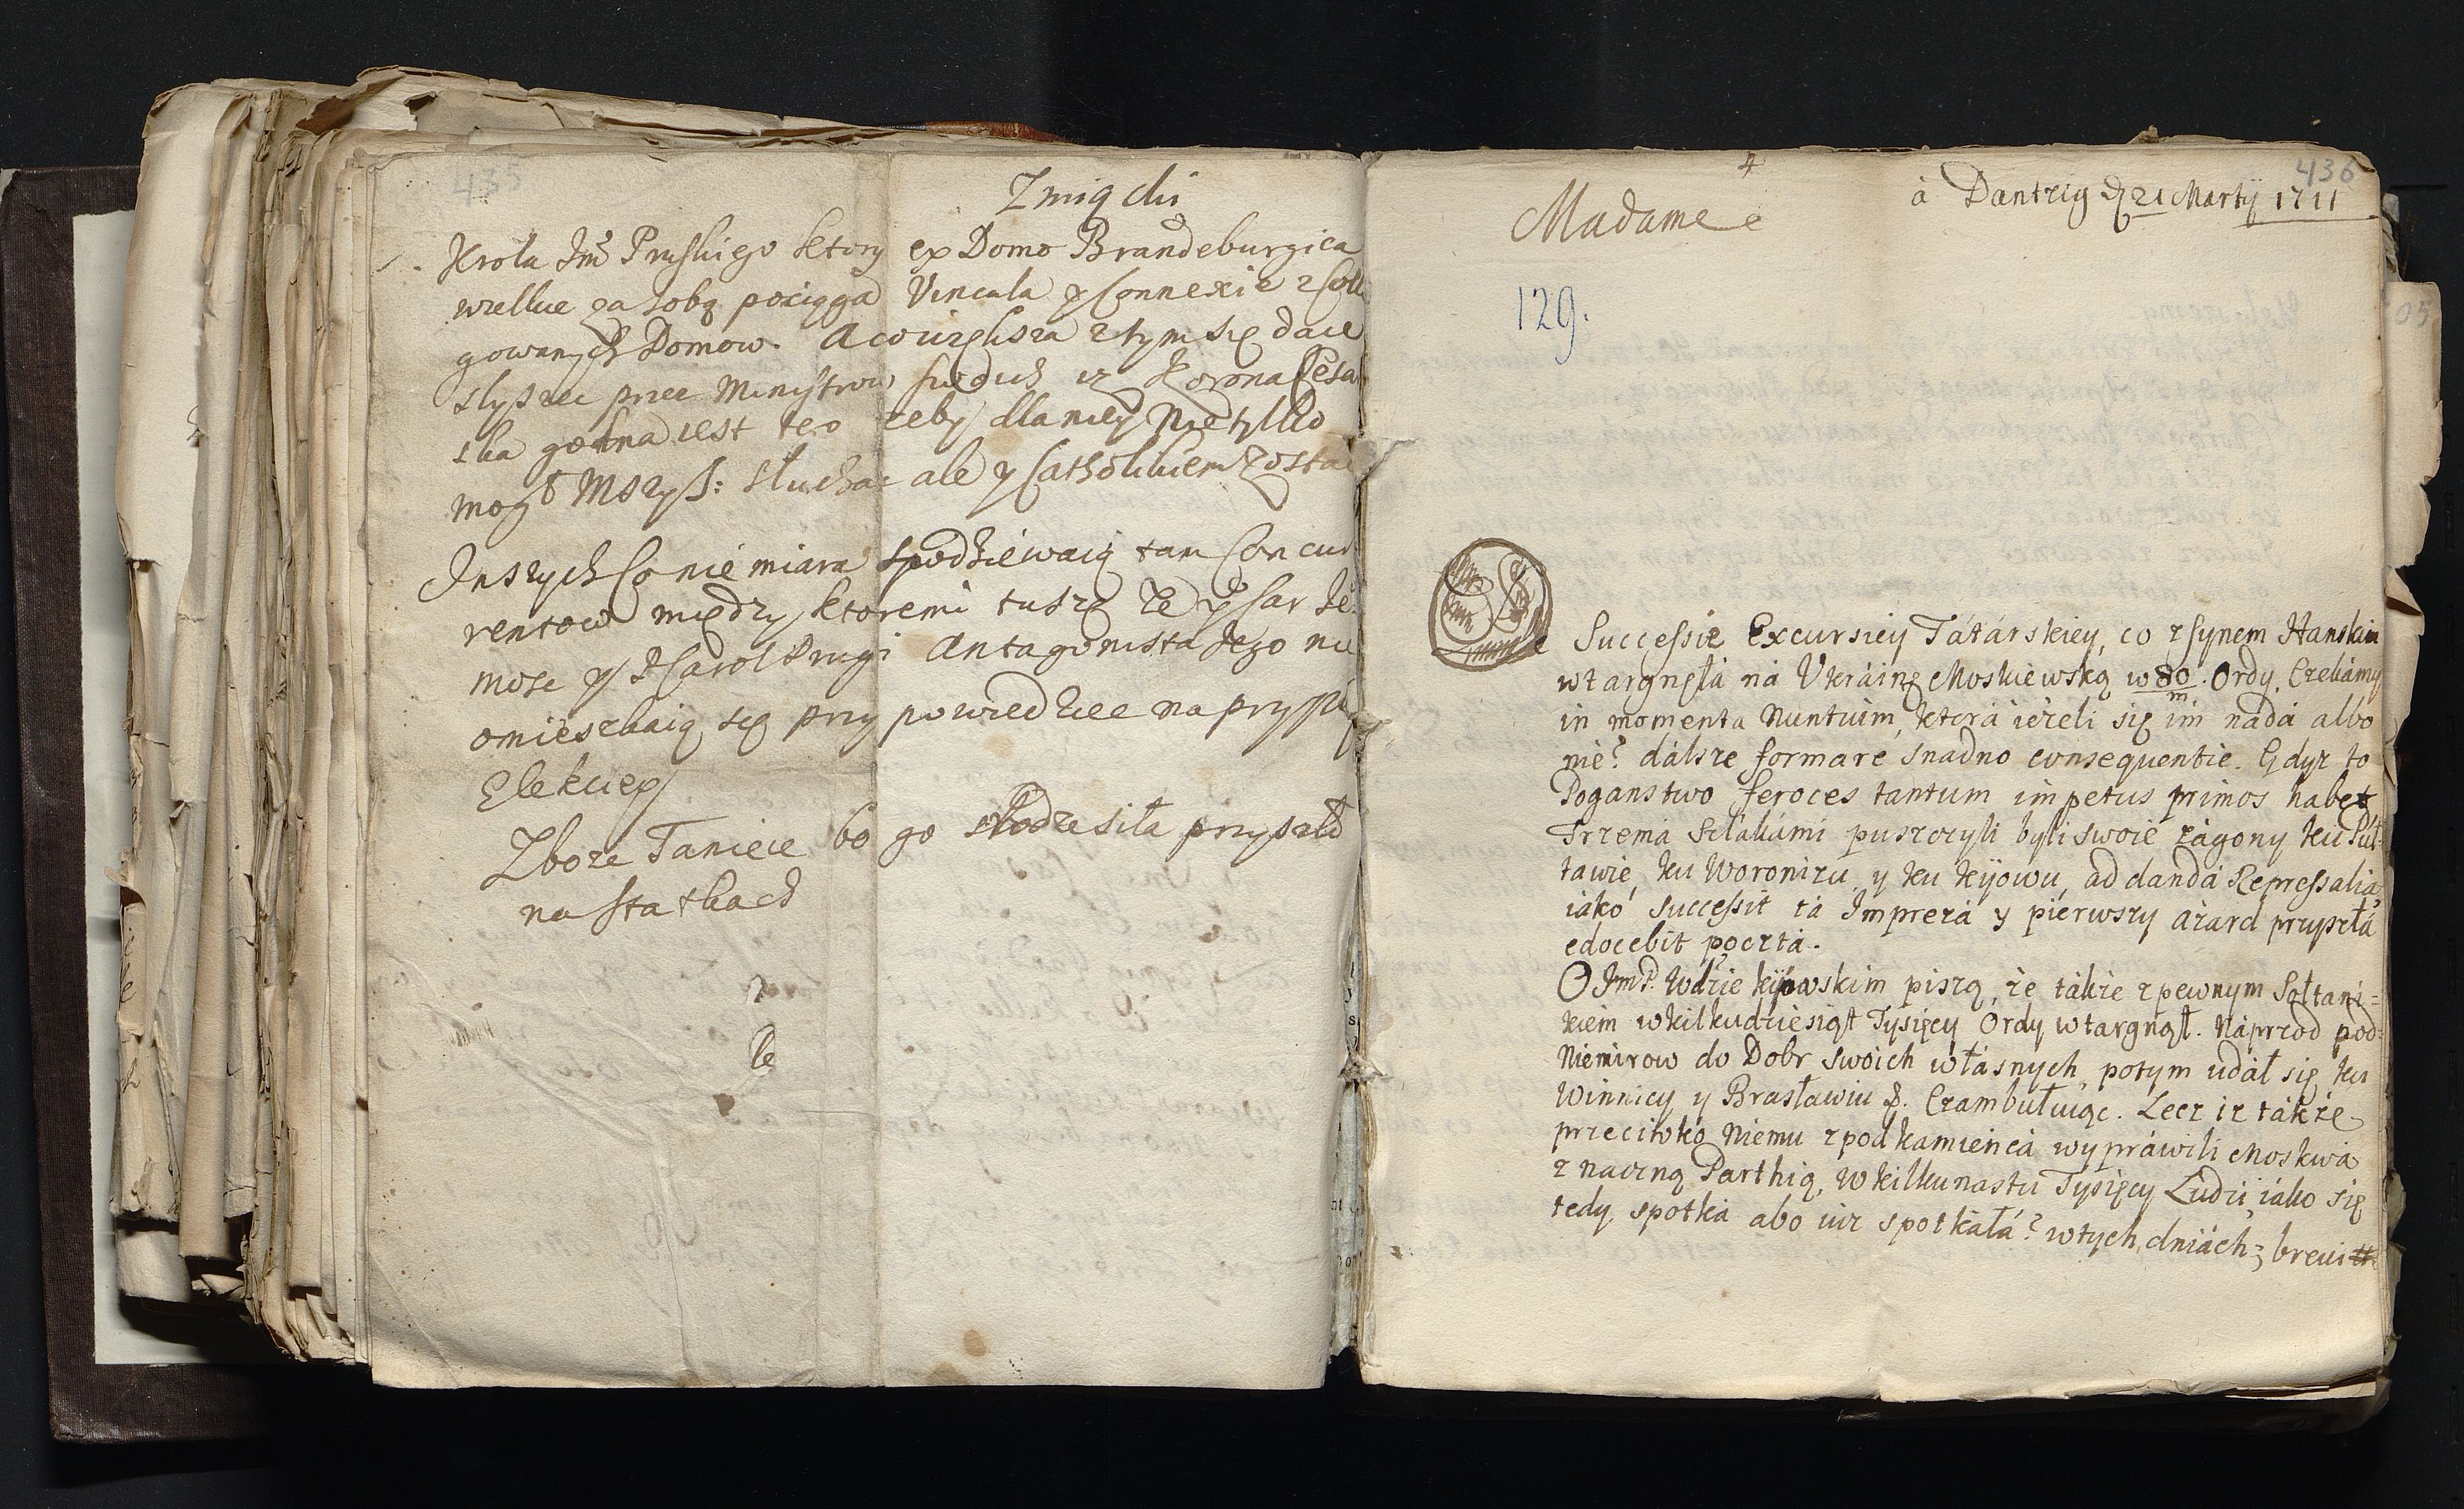 435
Zmiąchi
Krola Jm Pruskiego ktory ex Domo Brandeburgica
wielkie za sobą pociąga Vincula y Connexie z Coll
gowanych Domow. A co większa z tym się daie
slyszec przez Ministrow swoich iz Korona Cesa
ska godna iest tego zeby dla niey Nie tylko
mogł Mszy S: Słuchac ale y Catholikiem Zostac
Inszych Co nie miara spodziewaią tam Concur
rentow między ktoremi tuszę ze y Car Je
mosc y Carol Drugi Antagonista Jego nie
omieszkaią się przypowiedziec na przyszłą
Elekcyey
Zboze Taniece bo go Wodze siła przyszło
na statkach
436
à Dantzig d 21 Martij 1711
Madame
129.
Successie Excursiey Tátárskiey, co z synem Hanskim
wtargnęłá ná Vkráinę Moskiewską w 80/m. Ordy, Czekámy
in momenta Nuntium, ktorá ieżeli się im nadá albo
nie? dálsze formare snadno consequentie. Gdyz to
Poganstwo feroces tantum impetus primos habet
Trzemá Szlákámi puszczyli byli swoie zágony ku Puł-
tawie, ku Woronizu, y ku Kijowu, ad danda Repressalia,
iáko successit tá Imprezá y pierwszy ázard przyszłá
edocebit pocztá.
O Jm P. Wdzie kijowskim piszą, ze tákze z pewnym Sołtani=
kiem w kilkudziesiąt Tysięcy Ordy wtargnął. Náprzod pod=
Niemirow do Dobr swoich włásnych, potym udáł się ku
Winnicy y Brasławiu &. Czambułuiąc. Lecz iz tákze
przeciwko Niemu z pod kamieńcá wypráwili Moskwá
znaczną Parthią, w kilkunastu Tysięcy Ludzi, iáko się
tedy spotka abo iuz spotkáłá? w tych dniách; brevi